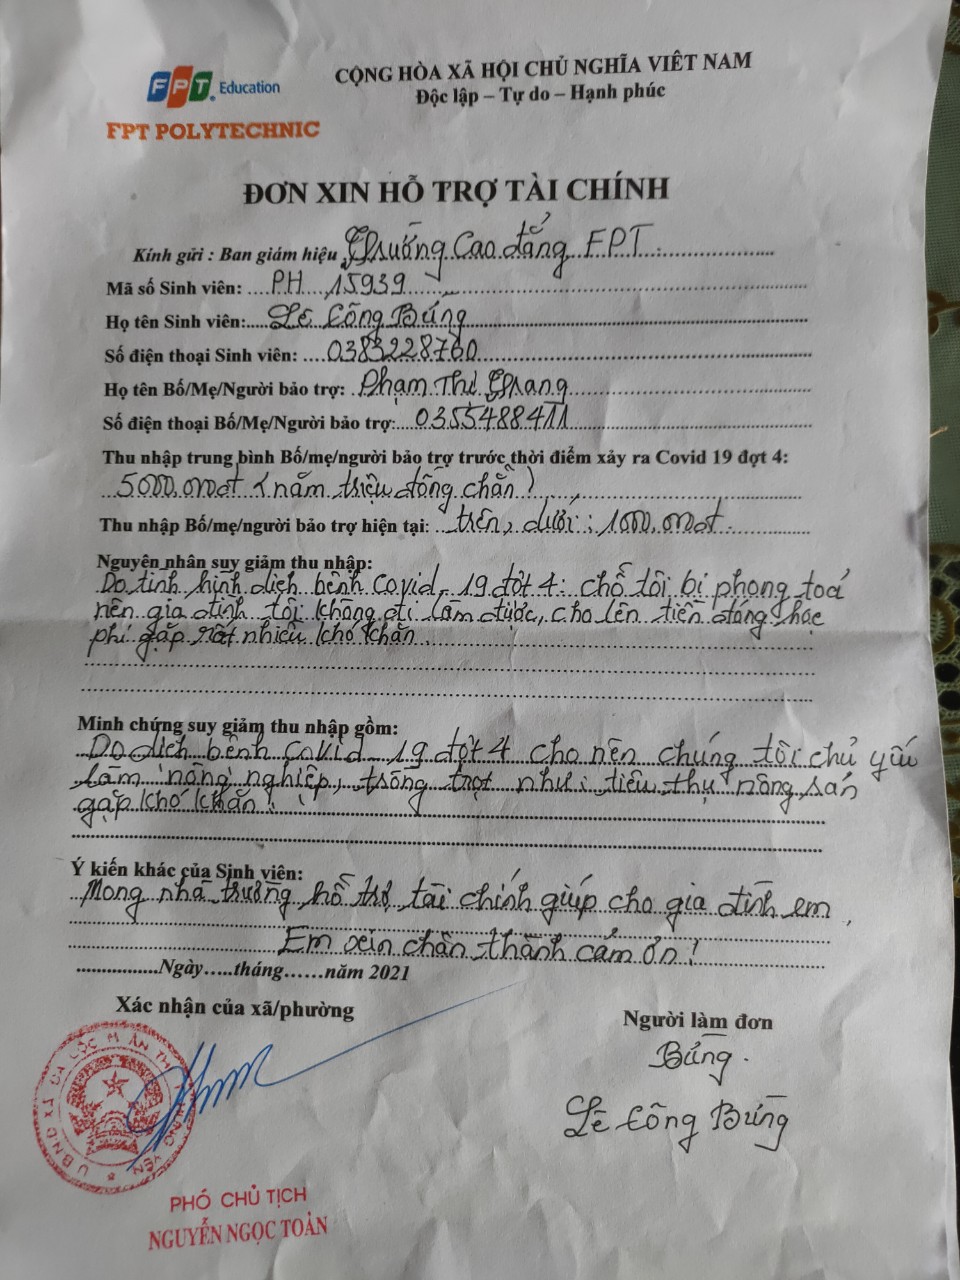 FPT Education
FPT POLYTECHNIC
CỘNG HÒA XÃ HỘI CHỦ NGHĨA VIÊT NAM
Độc lập – Tự do – Hạnh phúc
ĐƠN XIN HỖ TRỢ TÀI CHÍNH
Kính gửi : Ban giám hiệu Trường Cao đẳng FPT
Mã số Sinh viên: PH 15939
Họ tên Sinh viên: Lê Công Bưng
Số điện thoại Sinh viên: 0383228760
Họ tên Bố/Mẹ/Người bảo trợ: Phạm Thị Trang
Số điện thoại Bố/Mẹ/Người bảo trợ: 0355488411
Thu nhập trung bình Bố/mẹ/người bảo trợ trước thời điểm xảy ra Covid 19 đợt 4:
5000.000đ < năm triệu đồng chẵn !
Thu nhập Bố/mẹ/người bảo trợ hiện tại: trên, dưới : 1000.000đ.
Nguyên nhân suy giảm thu nhập:
Do tình hình dịch bệnh Covid 19 đợt 4: chỗ tôi bị phong toả
nên gia đình tôi không đi làm được, cho lên tiền đóng học
phí gặp rất nhiều khó khăn.
Minh chứng suy giảm thu nhập gồm:
Do dịch bệnh Covid 19 đợt 4 cho nên chúng tôi chủ yếu
làm nông nghiệp, trồng trọt như : tiêu thụ nông sản
gặp khó khăn !
Ý kiến khác của Sinh viên:
Mong nhà trường hỗ trợ tài chính giúp cho gia đình em.
Em xin chân thành cảm ơn !
Ngày.....tháng......năm 2021
Xác nhận của xã/phường
Người làm đơn
Bưng.
Lê Công Bưng
UBND XÃ ĐA LỘC H ÂN THI T HƯNG YÊN
PHÓ CHỦ TỊCH
NGUYỄN NGỌC TOẢN